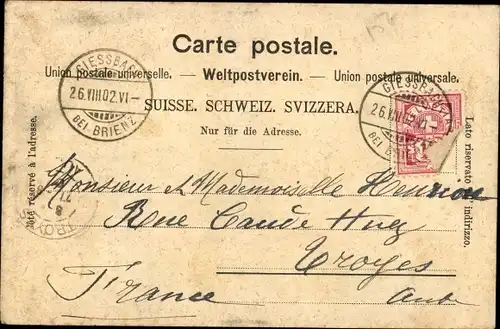 Carte postale.
Union postale universelle. — Weltpostverein. — Union postale universale.
SUISSE. SCHWEIZ. SVIZZERA.
Nur für die Adresse.
Côté réservé à l'adresse.
Lato riservato indirizzo.
GIESSBACH
26.VIII.02.VI–
BEI BRIENZ
GIESSBACH
26.VIII.02.VI–
BEI
Monsieur et Mademoiselle Henrion
Rue Claude Huez
Troyes
Aube
France